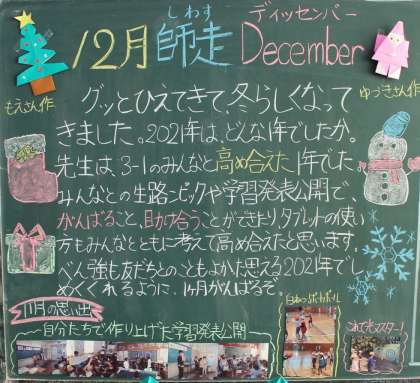 しわす ディッセンバー
12月 師走 December
もえさん作
ゆづきさん作
グッとひえてきて、冬らしくなって
きました。2021年は、どんな1年でしたか。
先生は、3-1のみんなと高め合えた1年でした。
みんなとの生路ンピックや学習発表公開で、
がんばること、助け合うことができたり、タブレットの使い
方もみんなとともに考えて高め合えたと思います。
べん強も友だちとのこともよかったと思える2021年でし
めくくれるように、1ヶ月がんばるぞ。
11月の思い出
自分たちで作り上げた学習発表公開
これでマスター!